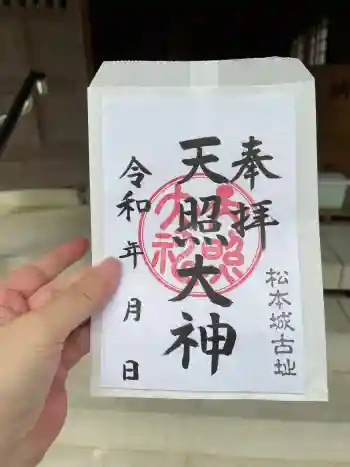 奉拝
天照大神
松本城古址
令和年月日